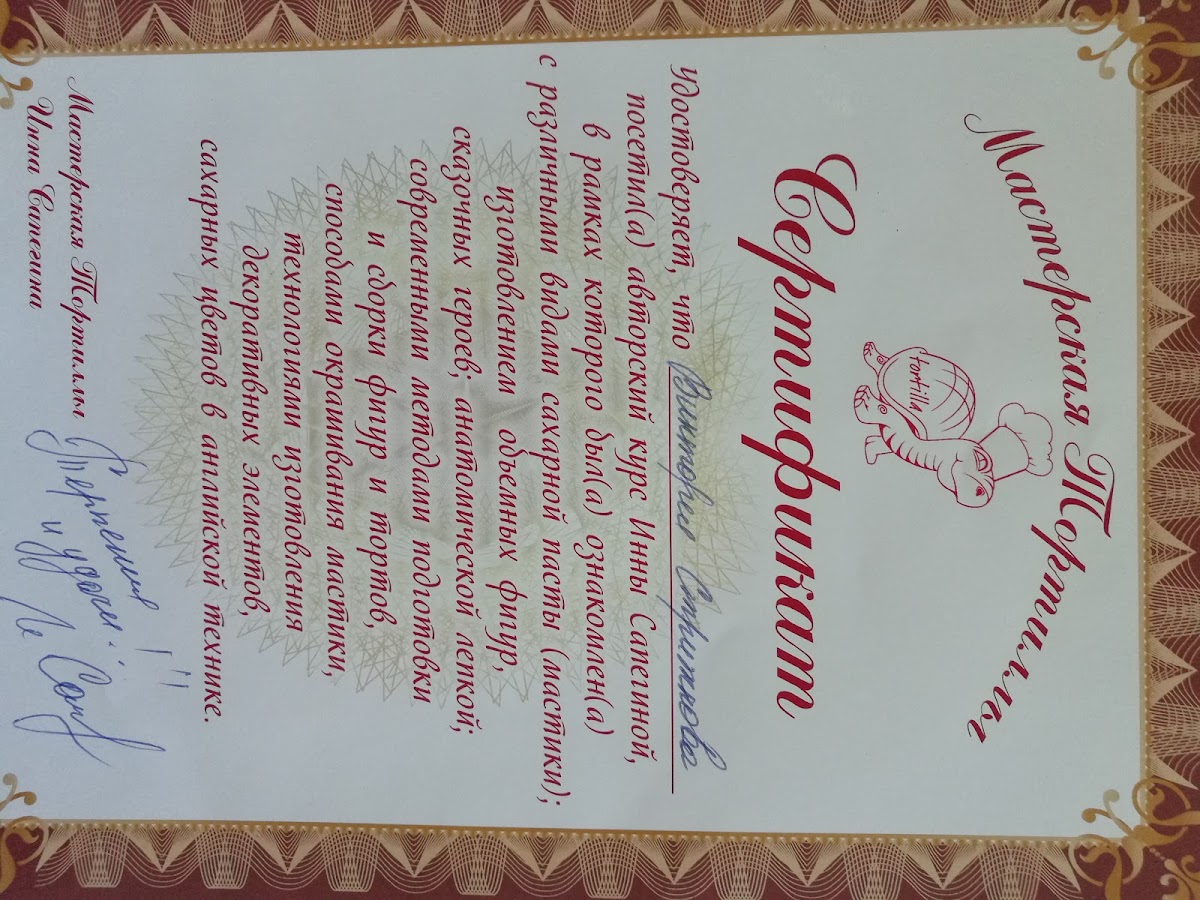 Мастерская Тортиллы
Tortilla
Сертификат
удостоверяет, что Виктория Стрижкова
посетил(а) авторский курс Инны Сапегиной,
в рамках которого был(а) ознакомлен(а)
с различными видами сахарной пасты (мастики);
изготовлением объемных фигур,
сказочных героев; анатомической лепкой;
современными методами подготовки
и сборки фигур и тортов,
способами окрашивания мастики,
технологиями изготовления
декоративных элементов,
сахарных цветов в английской технике.
Мастерская Тортиллы Терпения
Инна Сапегина и удачи!!!